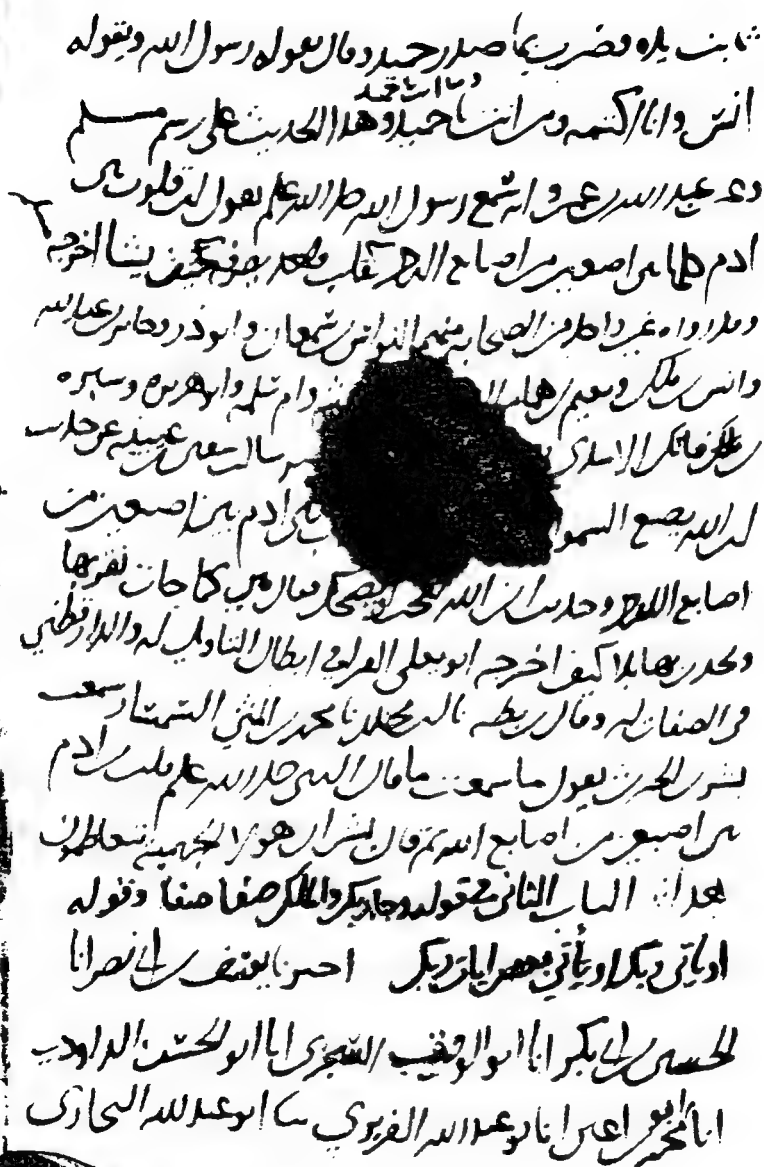 ثابت يده فضرب بها صدر حميد وقال يقوله رسول الله ويقوله
انس وانا اكتمه ومن انت يا حميد وهذا الحديث على رسم مسلم
وعن عبد الله بن عمرو انه سمع رسول الله صلى الله علم يقول ان قلوب بنى
ادم كلها بين اصبعين من اصابع الرحمن كقلب واحد يصرفه كيف يشا اخرجه م
وقد رواه غير واحد من الصحابة منهم النواس بن سمعان وابو ذر وجابر بن عبد الله
وانس بن ملك ونعيم بن همار وام سلمه وابو هريره وسبره
بن فاتك الاسدى سالت سفين بن عيينه عن حديث
ان الله يضع السمو ادم بين اصبعين من
اصابع الرحمن وحديث ان الله يعجب او يضحك فقال هي كما جات نقر بها
ونحدث بها بلا كيف اخرجه ابو يعلى الفرا في ابطال التاويل له والدارقطني
في الصفات له وقال بن بطه نا بن مخلد نا محمد بن المثني السمسار سمعت
بشر بن الحرث يقول ما سمعت ما قال النبي صلى الله علم قلب بن ادم
بين اصبعين من اصابع الله ثم قال بشر ان هولا الجهمية يتعاظمون
هذا الباب الثانى في قوله وجا ربك والملك صفا صفا وقوله
او ياتي ربك او يأتي بعض ايات ربك اخبرنا يوسف بن ابي نصر انا
الحسين بن ابي بكر انا ابو الوقت السجزى انا ابو الحسن الداودي
انا ابو محمد بن اعين انا ابو عبد الله الفربري ثنا ابو عبد الله البخارى